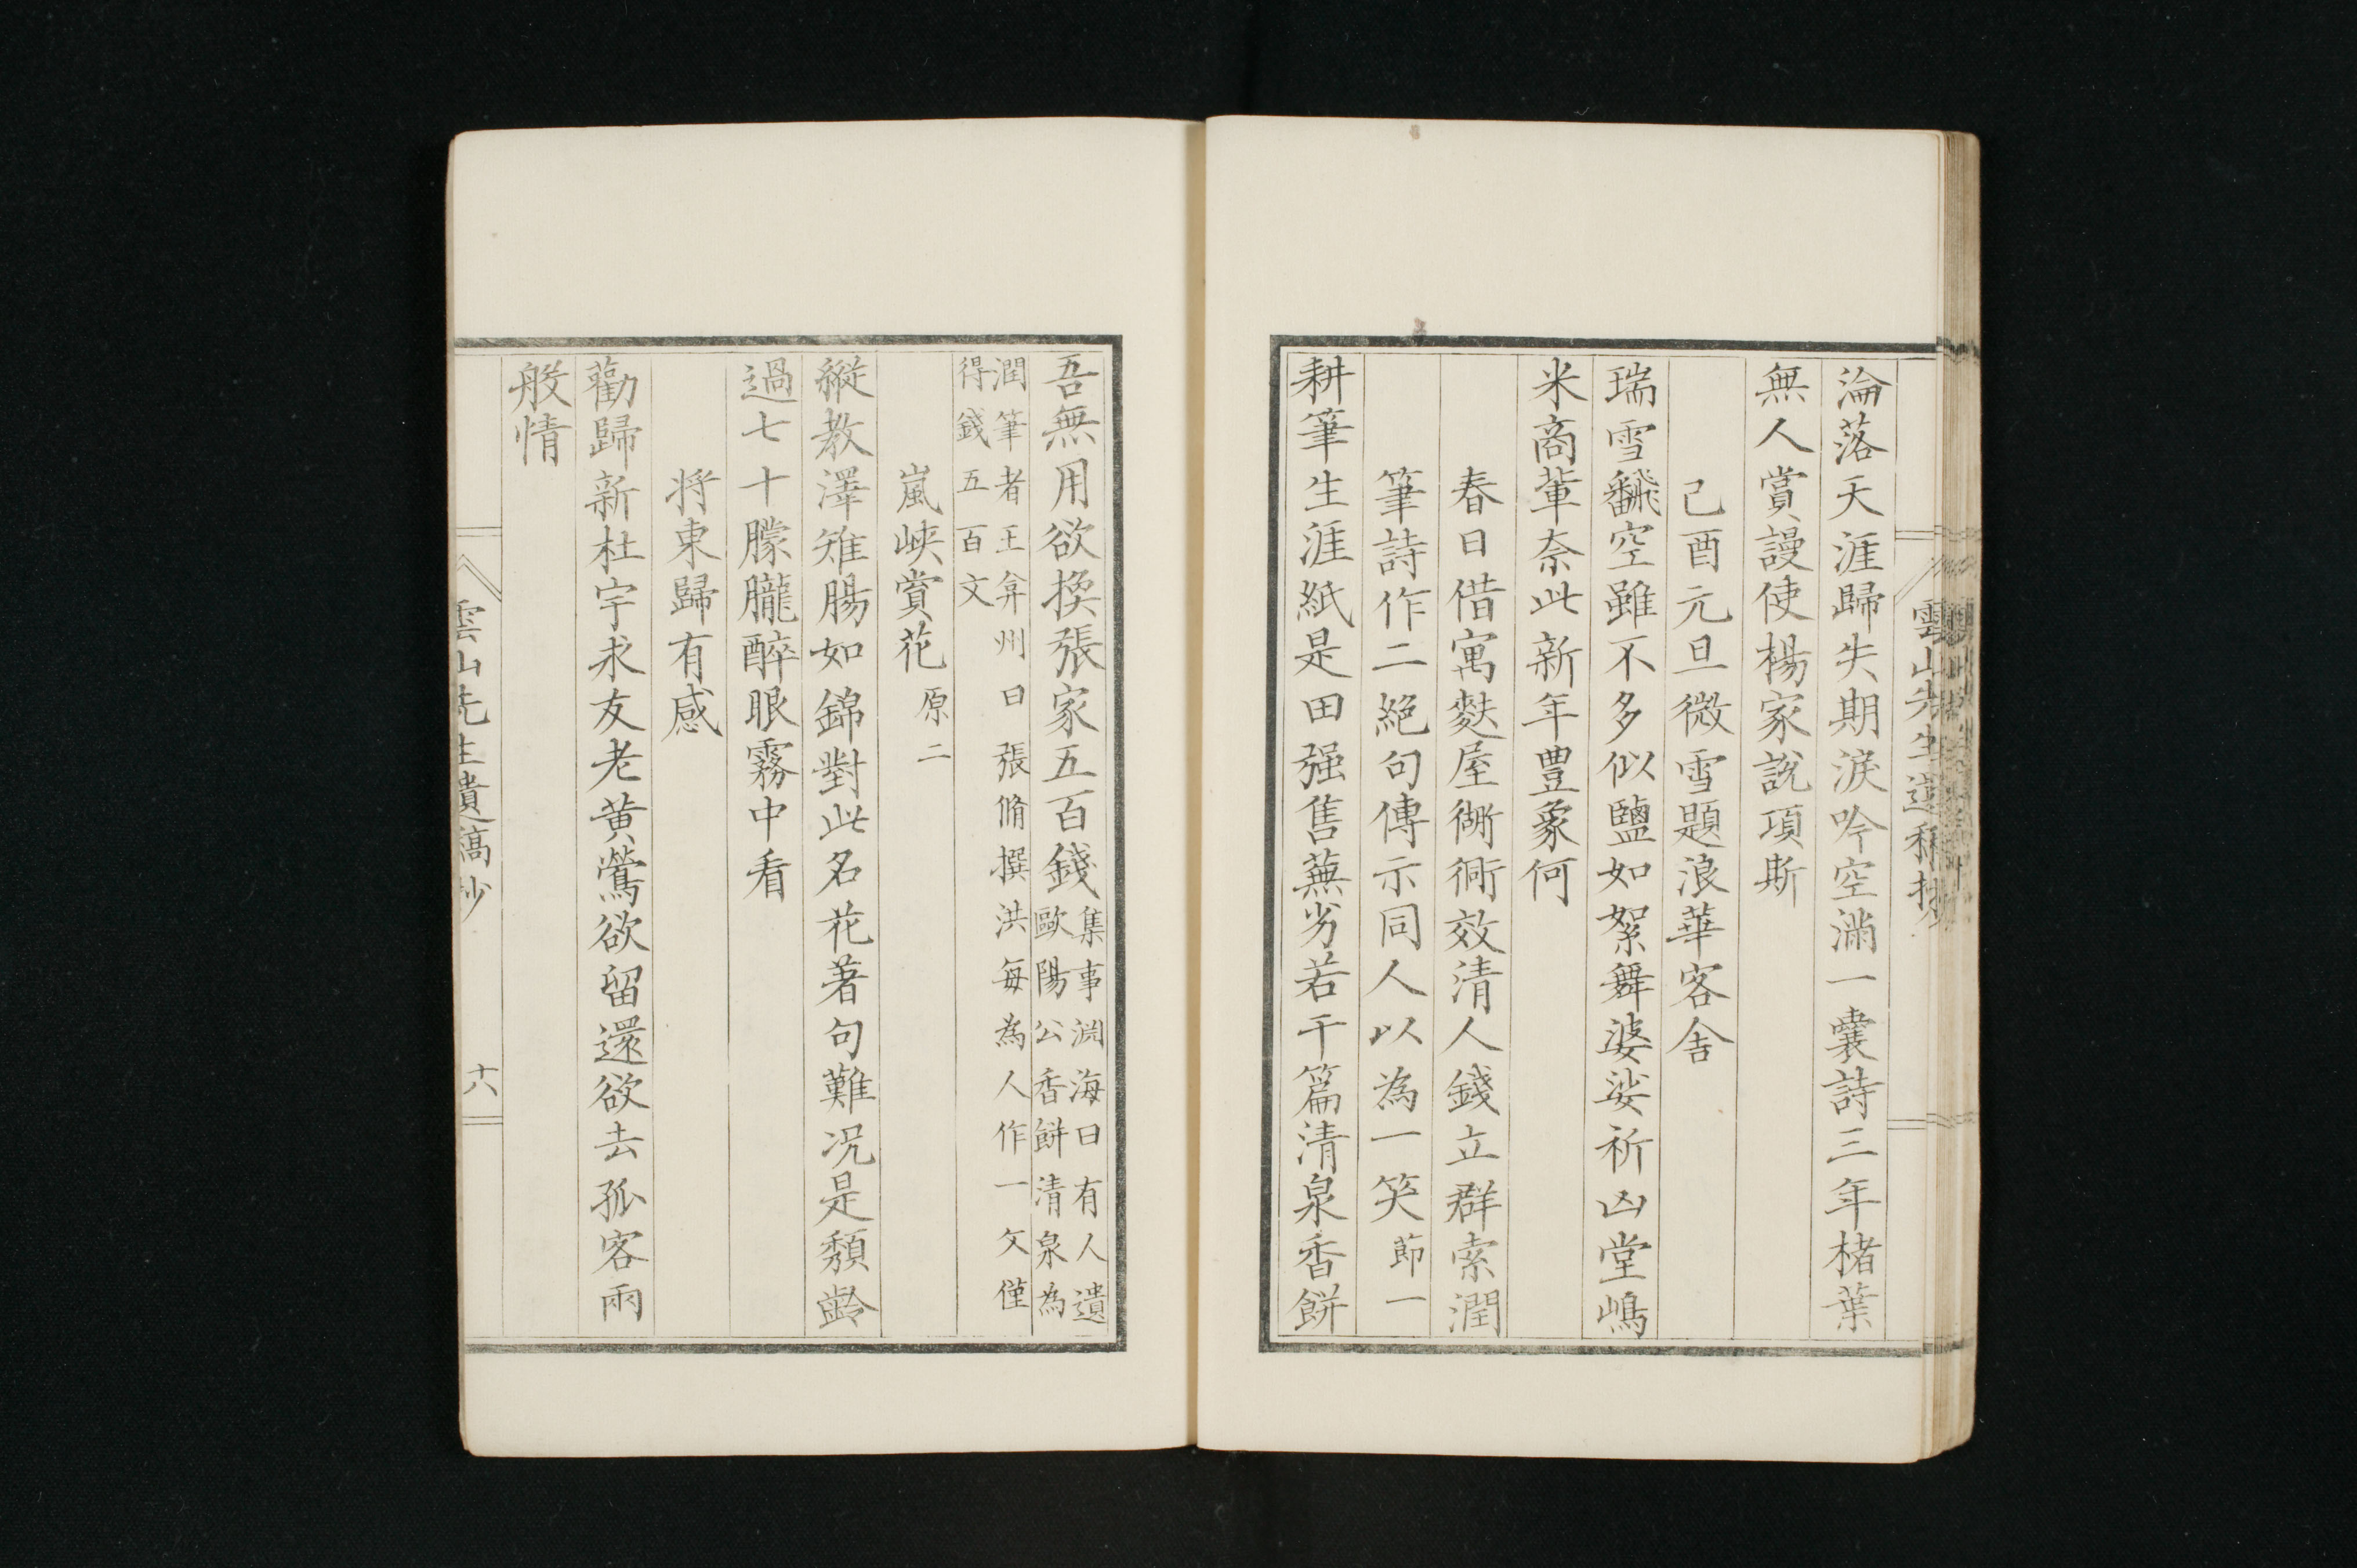 淪落天涯歸失期淚吟空滿一囊詩三年楮葉
無人賞謾使楊家說項斯
己酉元旦微雪題浪華客舍
瑞雪飜空雖不多似鹽如絮舞婆娑祈凶堂嶋
米商輩奈此新年豊象何
春日借寓麩屋衚衕效清人錢立群索潤
筆詩作二絕句傳示同人以為一笑 莭一
耕筆生涯紙是田强售蕪劣若干篇清泉香餅
雲山先生遺稿抄
吾無用欲換張家五百錢
集事淵海曰有人遺
歐陽公香餅清泉為
潤筆者王弇州曰張脩撰洪每為人作一文僅
得錢五百文
嵐峽賞花 原二
縱教澤雉腸如錦對此名花著句難况是頹齡
過七十朦朧醉眼霧中看
將東歸有感
勸歸新杜宇求友老黃鶯欲留還欲去孤客兩
般情
雲山先生遺稿抄
十八